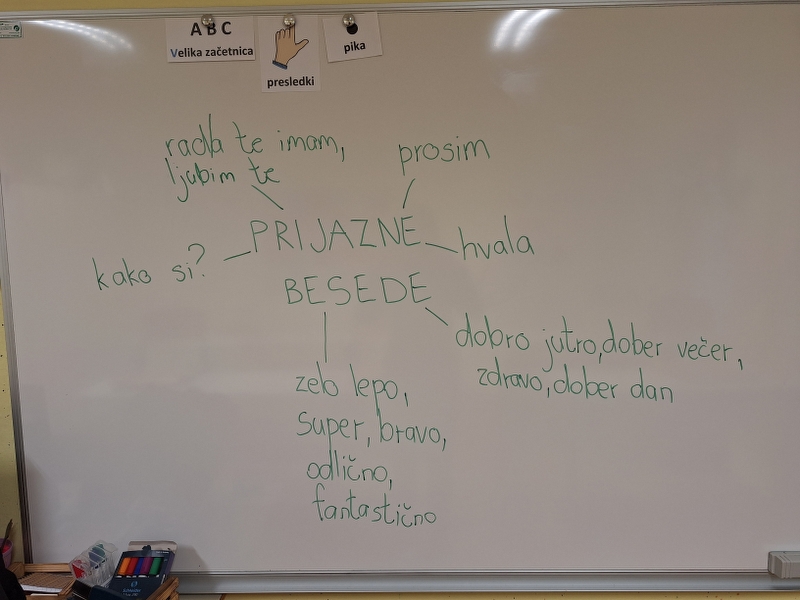 A B C
Velika začetnica
presledki
pika
rad/a te imam,
ljubim te
prosim
PRIJAZNE
hvala
kako si?
BESEDE
dobro jutro, dober večer,
zdravo, dober dan
zelo lepo,
super, bravo,
odlično,
fantastično